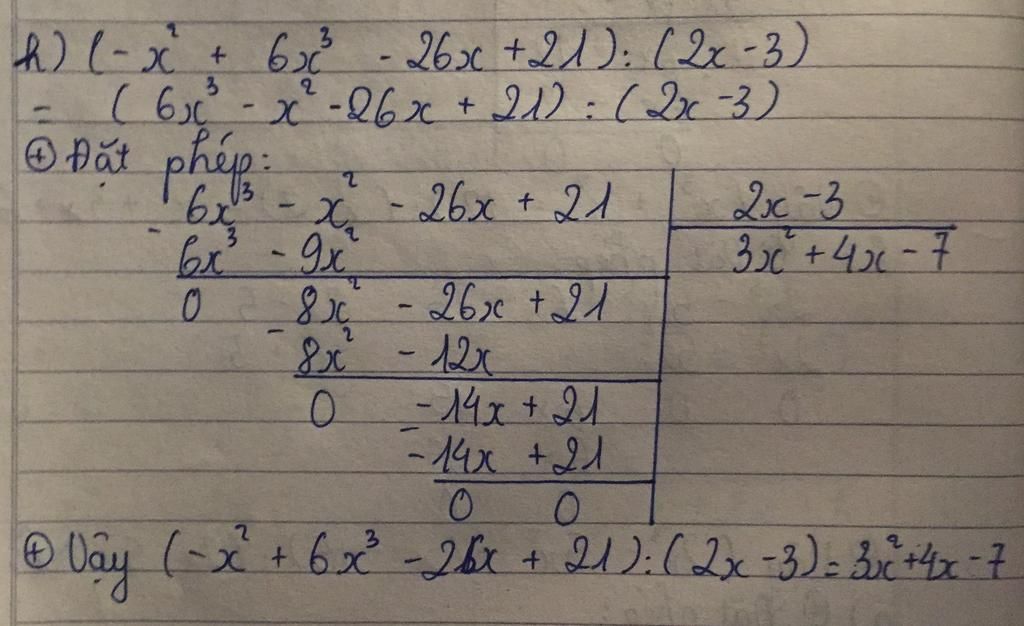 h) (-x² + 6x³ - 26x + 21) : (2x - 3)
= (6x³ - x² - 26x + 21) : (2x - 3)
⊕ Đặt phép:
6x³ - x² - 26x + 21 2x - 3
-
6x³ - 9x² 3x² + 4x - 7
0 8x² - 26x + 21
-
8x² - 12x
0 -14x + 21
-
-14x + 21
0 0
⊕ Vậy (-x² + 6x³ - 26x + 21) : (2x - 3) = 3x² + 4x - 7